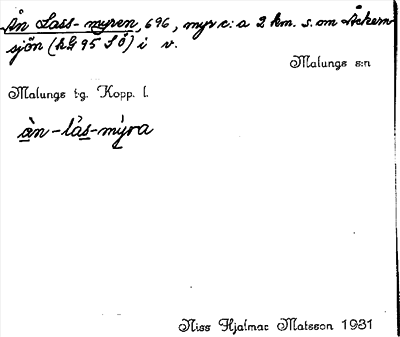 Ån Lass-myren, 696, myr c:a 2 km. s. om Åckern
sjön (kG 95 SÖ) i v.
Malungs s:n
Malungs t:g. Kopp. l.
àn-lás-mýra
Niss Hjalmar Matsson 1931